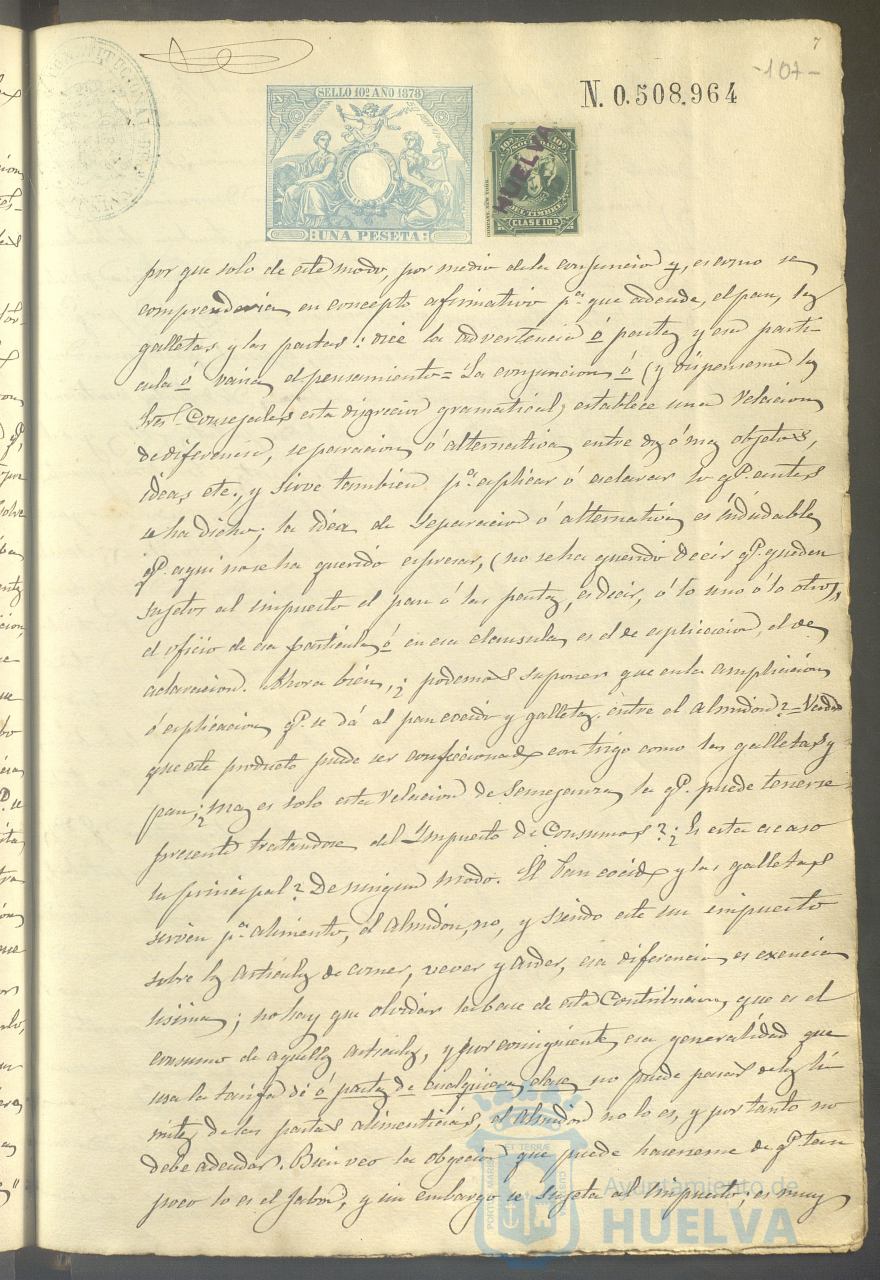 7
-107-
CONSTITUCIONAL DE
SELLO 10º AÑO 1878
UNA PESETA
N. 0.508.964
10ª SOCIEDAD 10ª
HUELVA
DEL TIMBRE
CLASE 10ª
por que solo de este modo, por medio de la conjuncion y, es como se
comprenderia en concepto afirmativo pª que adeude, el pan, las
galletas y las pastas: dice la advertencia ó pasta y esa parti-
cula ó varia el pensamiento = La conjuncion ó (y dispenseme los
Sres. Concejales esta digrecion gramatical) establece una relacion
de diferencia, separacion ó alternativa entre dos ó mas objetos,
ideas, etc., y sirve tambien pª esplicar ó aclarar lo qe. antes
se ha dicho; la idea de separacion ó alternativa es indudable
qe. aqui no se ha querido espresar, (no se ha querido decir qe. queden
sujetos al impuesto el pan ó las pastas, es decir, ó lo uno ó lo otro),
el oficio de esa particula ó en esa clausula es el de esplicacion, el de
aclaracion. Ahora bien, ¿podemos suponer que en la ampliacion
ó esplicacion qe. se dá al pan cocido y galletas, entre el almidon? = Verdad
que este producto puede ser confeccionado con trigo como las galletas y
pan; ¿mas es solo esta relacion de semejanza la qe. puede tenerse
presente tratandose del Impuesto de Consumos? ¿Es esta acaso
la principal? De ningun modo. El Pan cocido y las galletas
sirven pª alimento, el almidon, no, y siendo este un impuesto
sobre los articulos de comer, vever y arder, esa diferencia es exencia
lisima; no hay que olvidar la base de esta Contribucion, que es el
consumo de aquellos articulos, y por consiguiente esa generalidad que
usa la tarifa de ó pastas de cualquiera clase no puede pasar de los lí
mites de las pastas alimenticias, el almidon no lo es, y por tanto no
debe adeudar. Bien veo la objecion que puede hacerseme de qe. tam
poco lo es el Jabon, y sin embargo se sujeta al impuesto; es muy
PORTUS MARIS ET TERRAE CUSTODIA
Ayuntamiento de
HUELVA